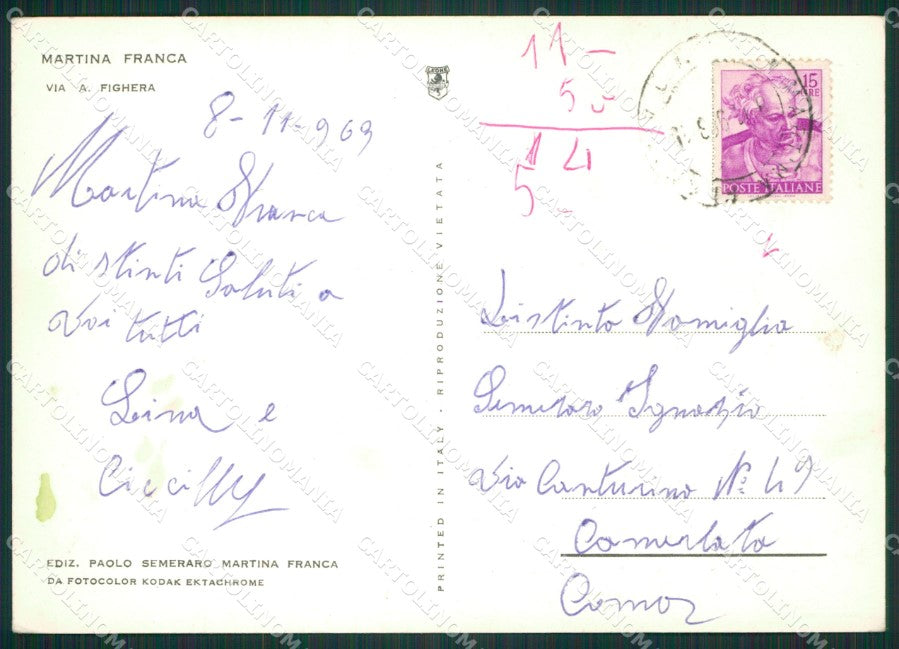 MARTINA FRANCA
VIA A. FIGHERA
8-11-969
Martina Franca
distinti Saluti a
voi tutti
Lina e
EDIZ. PAOLO SEMERARO MARTINA FRANCA
DA FOTOCOLOR KODAK EKTACHROME
LEONE
PRINTED IN ITALY - RIPRODUZIONE VIETATA
11 -
5
14
5 -
15
LIRE
POSTE ITALIANE
Distinto Famiglia
Semeraro Ignazio
Via Canturino N° 49
Camerlata
Como
CARTOLINOMANIA